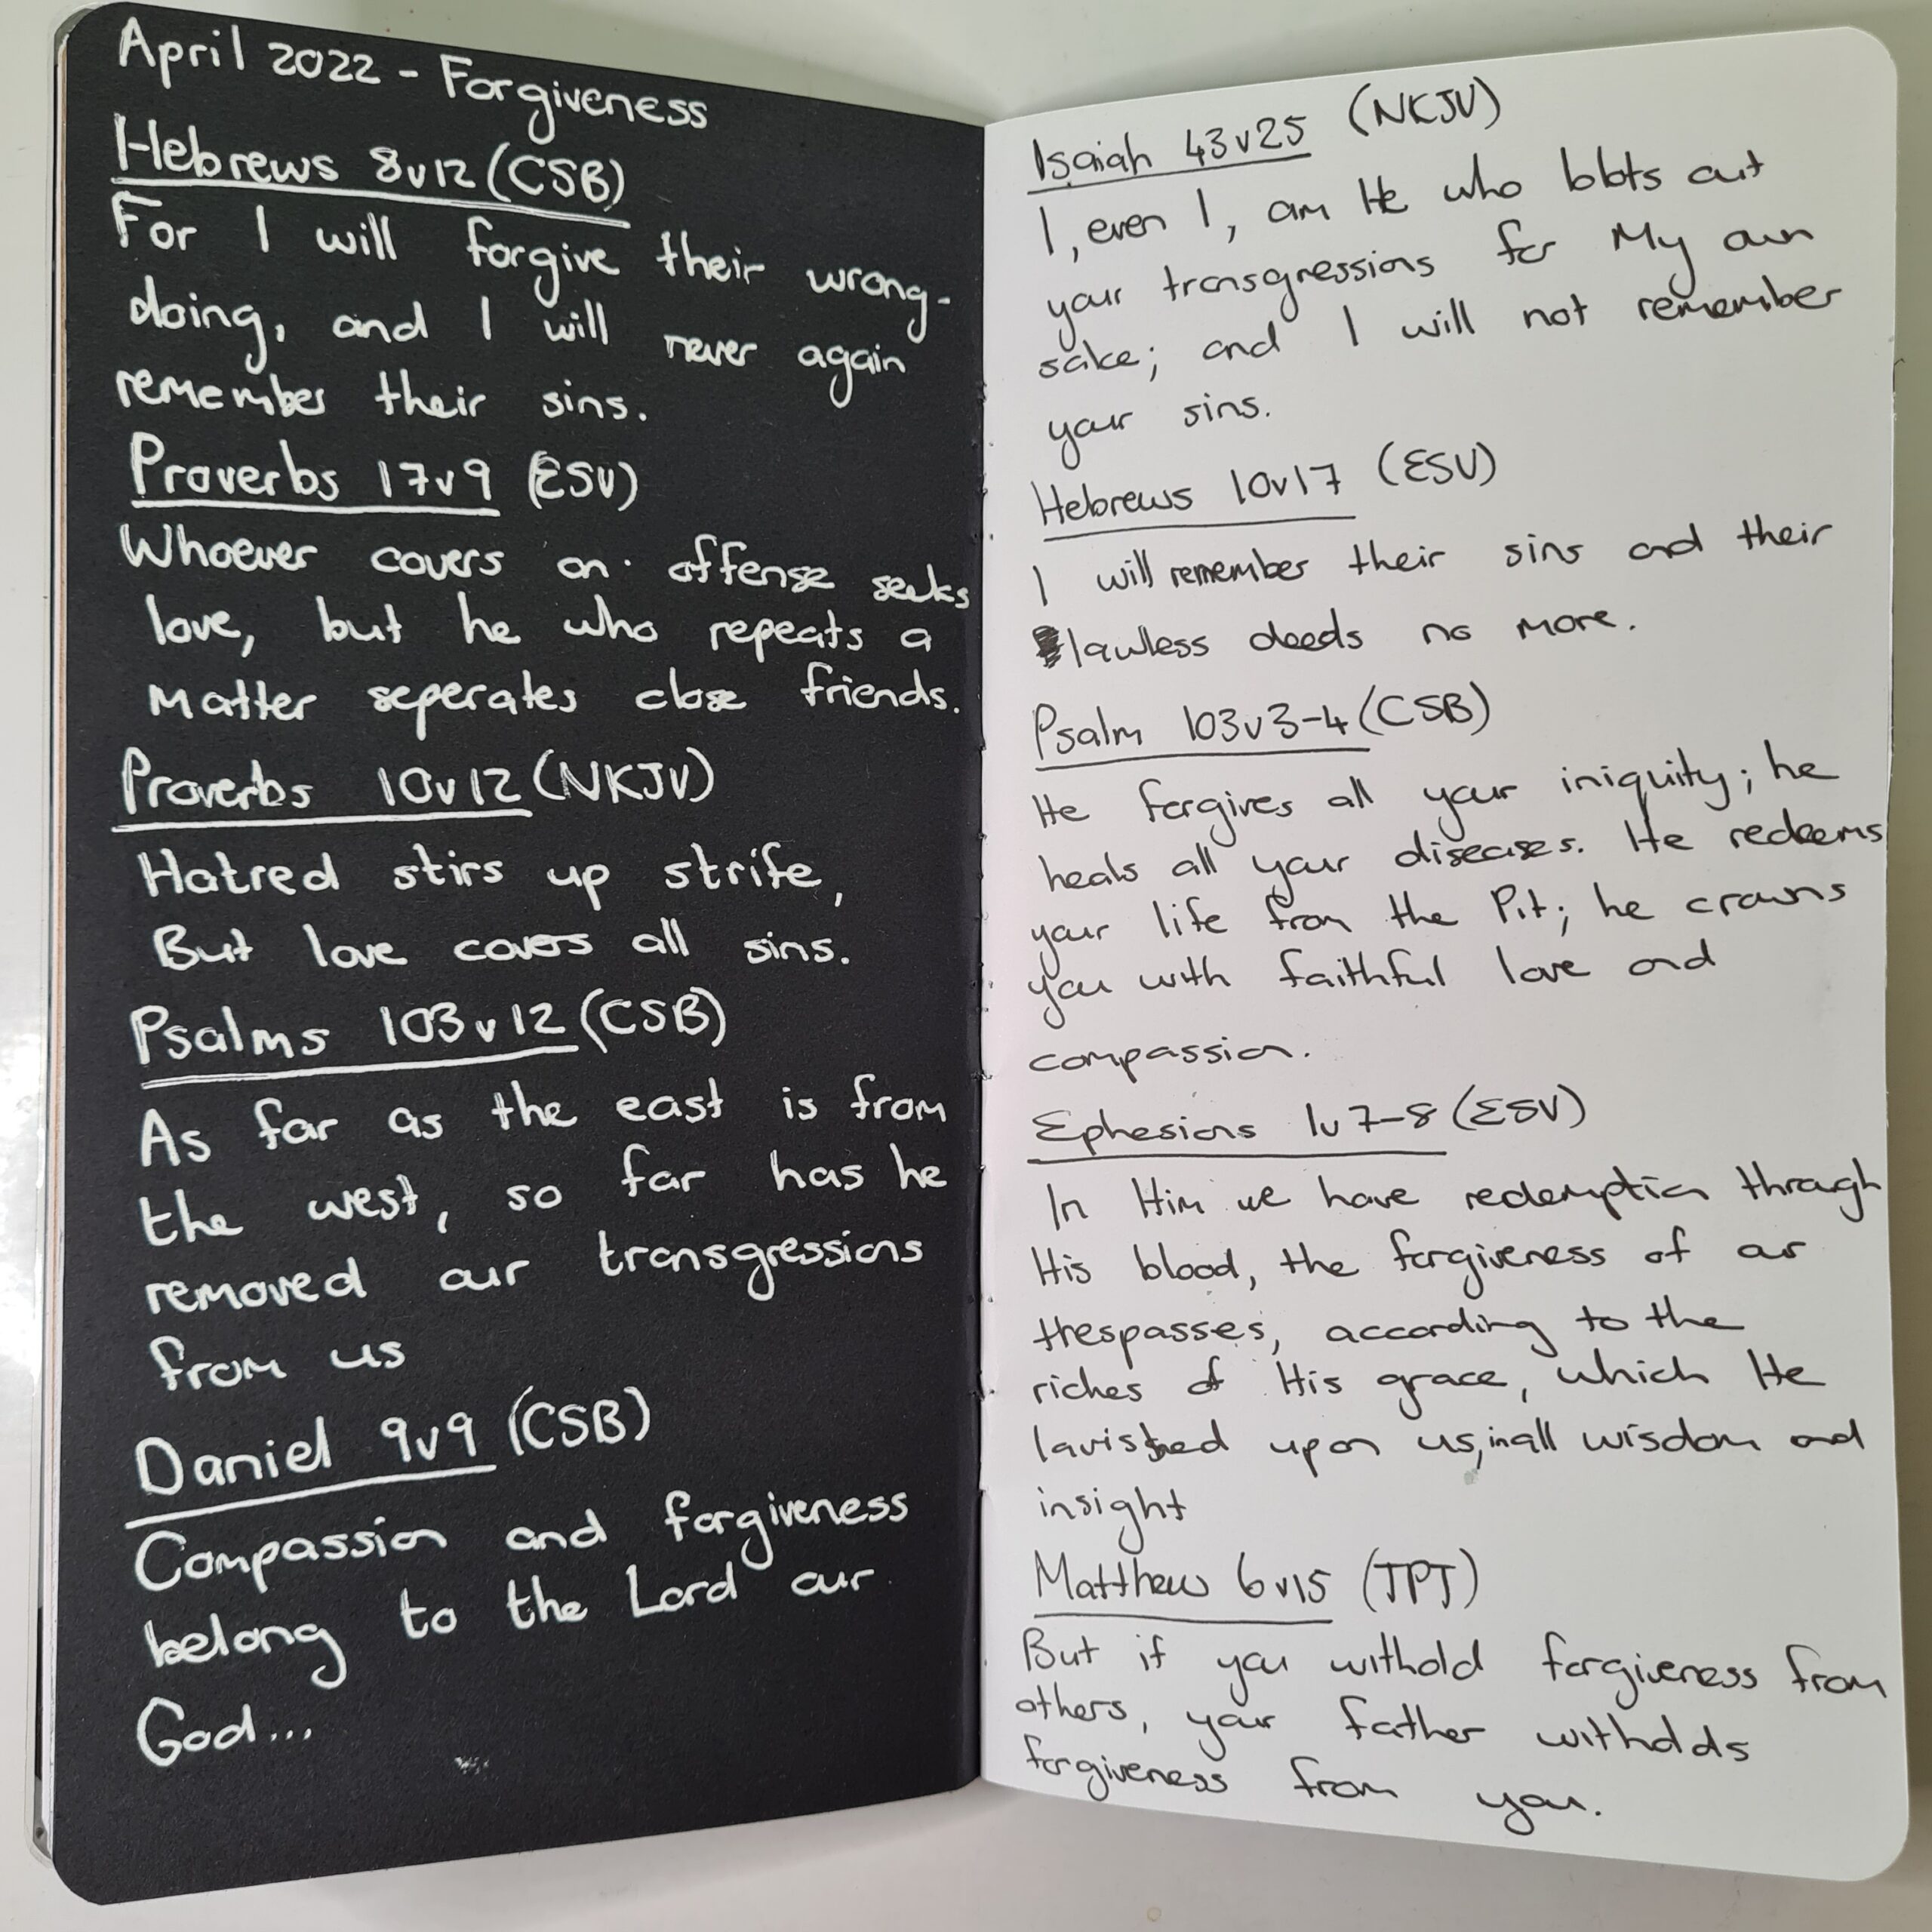 April 2022 - Forgiveness
Hebrews 8v12 (CSB)
For I will forgive their wrong-
doing, and I will never again
remember their sins.
Proverbs 17v9 (ESV)
Whoever covers an offense seeks
love, but he who repeats a
matter seperates close friends.
Proverbs 10v12 (NKJV)
Hatred stirs up strife,
But love covers all sins.
Psalms 103v12 (CSB)
As far as the east is from
the west, so far has he
removed our transgressions
from us
Daniel 9v9 (CSB)
Compassion and forgiveness
belong to the Lord our
God...
Isaiah 43v25 (NKJV)
I, even I, am He who blots out
your transgressions for My own
sake; and I will not remember
your sins.
Hebrews 10v17 (ESV)
I will remember their sins and their
lawless deeds no more.
Psalm 103v3-4 (CSB)
He forgives all your iniquity; he
heals all your diseases. He redeems
your life from the Pit; he crowns
you with faithful love and
compassion.
Ephesians 1v7-8 (ESV)
In Him we have redemption through
His blood, the forgiveness of our
trespasses, according to the
riches of His grace, which He
lavished upon us, in all wisdom and
insight
Matthew 6v15 (TPT)
But if you withold forgiveness from
others, your father witholds
forgiveness from you.